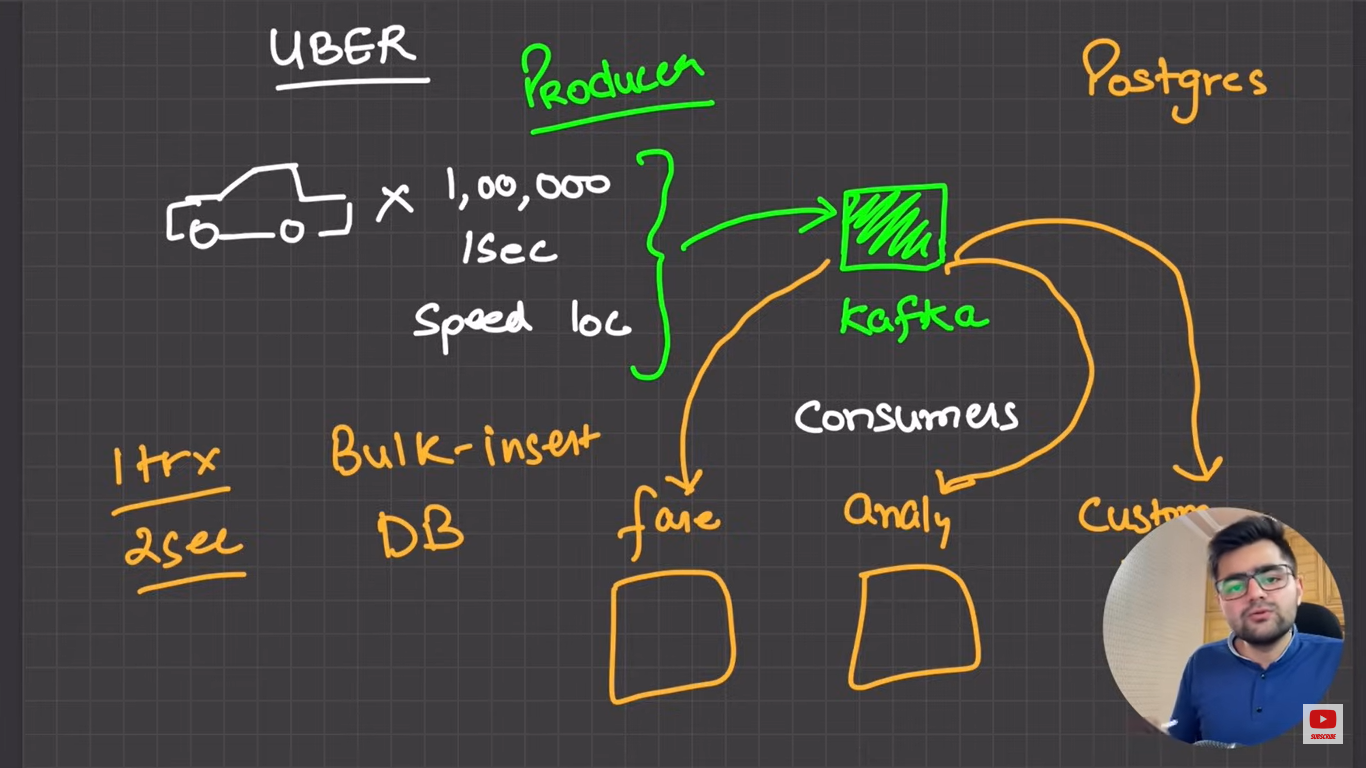 UBER
Producer
Postgres
x 1,00,000
1sec
Speed loc
Kafka
Consumers
1 trx
2sec
Bulk-insert
DB
fare
analy
Custom
SUBSCRIBE